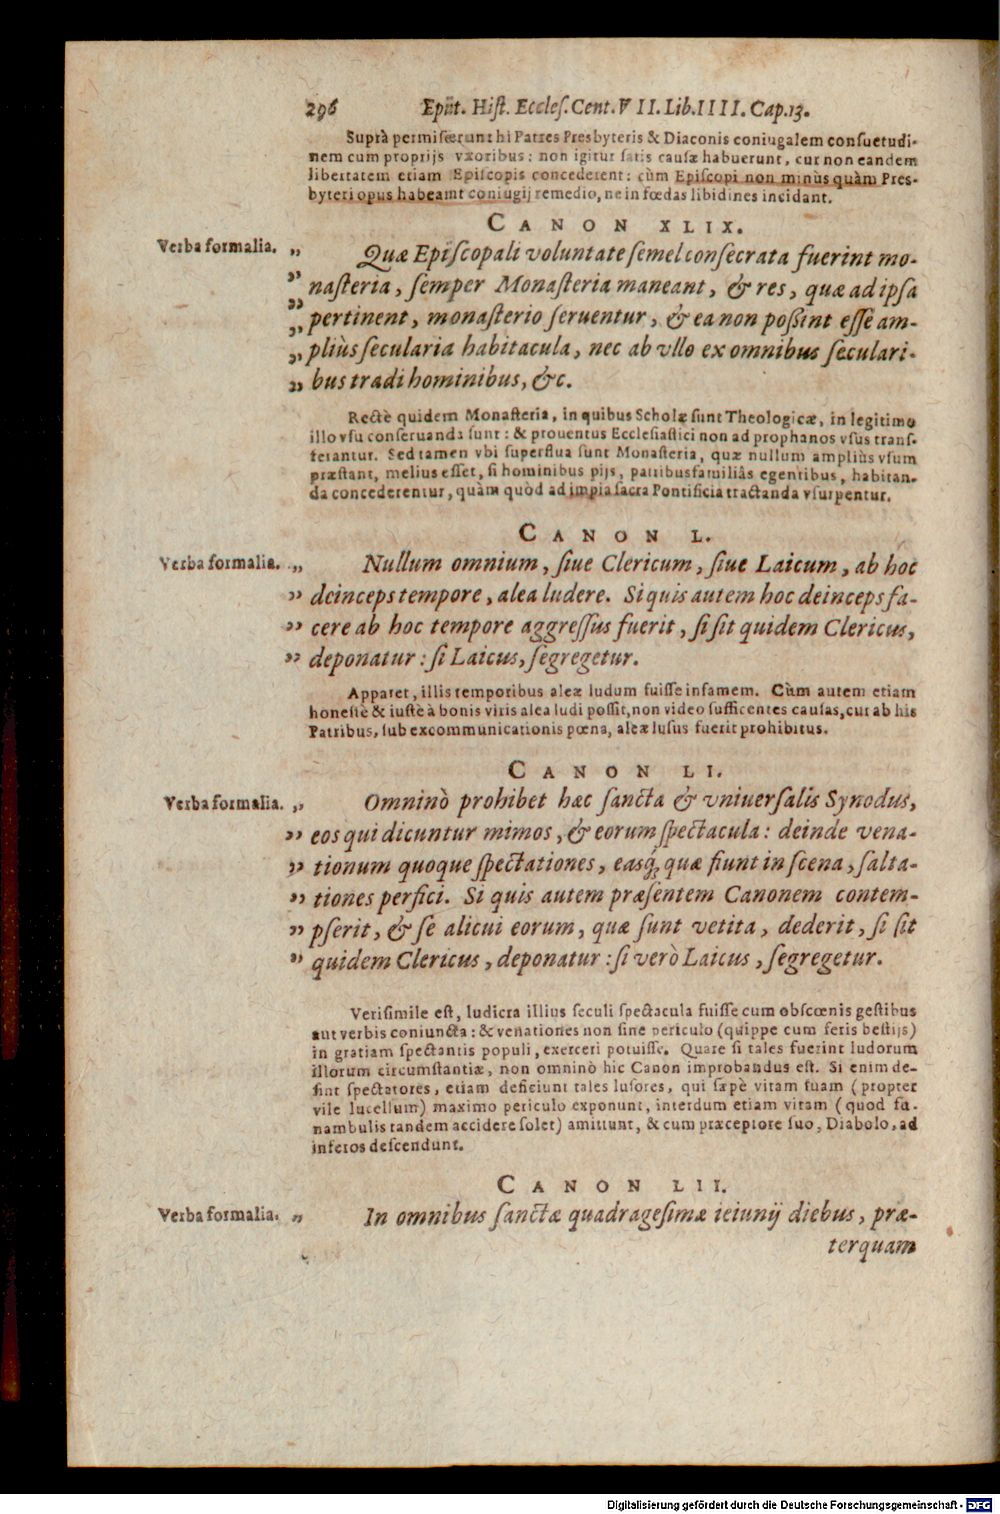 296 Epit. Hiſt. Eccleſ. Cent. VII. Lib. IIII. Cap. 13.
Suprà permiſerunt hi Patres Presbyteris & Diaconis coniugalem conſuetudi-
nem cum proprijs vxoribus: non igitur ſatis cauſæ habuerunt, cur non eandem
libertatem etiam Epiſcopis concederent: cùm Epiſcopi non minùs quàm Pres-
byteri opus habeamt coniugij remedio, ne in fœdas libidines incidant.
CANON XLIX.
Verba formalia. „ Quæ Epiſcopali voluntate ſemel conſecrata fuerint mo-
„ naſteria, ſemper Monaſteria maneant, & res, quæ ad ipſa
„ pertinent, monaſterio ſeruentur, & ea non poßint eſſe am-
„ pliùs ſecularia habitacula, nec ab vllo ex omnibus ſeculari-
„ bus tradi hominibus, &c.
Rectè quidem Monaſteria, in quibus Scholæ ſunt Theologicæ, in legitimo
illo vſu conſeruanda ſunt: & prouentus Eccleſiaſtici non ad prophanos vſus transſ-
ferantur. Sed tamen vbi ſuperflua ſunt Monaſteria, quæ nullum ampliùs vſum
præſtant, melius eſſet, ſi hominibus pijs, patribusfamiliâs egentibus, habitan-
da concederentur, quàm quòd ad impia ſacra Pontificia tractanda vſurpentur.
CANON L.
Verba formalia. „ Nullum omnium, ſiue Clericum, ſiue Laicum, ab hoc
„ deinceps tempore, alea ludere. Si quis autem hoc deinceps fa-
„ cere ab hoc tempore aggreſſus fuerit, ſi ſit quidem Clericus,
„ deponatur: ſi Laicus, ſegregetur.
Apparet, illis temporibus aleæ ludum fuiſſe infamem. Cùm autem etiam
honeſtè & iuſtè à bonis viris alea ludi poſſit, non video ſufficentes cauſas, cur ab his
Patribus, ſub excommunicationis pœna, aleæ luſus fuerit prohibitus.
CANON LI.
Verba formalia. „ Omninò prohibet hæc ſancta & vniuerſalis Synodus,
„ eos qui dicuntur mimos, & eorum ſpectacula: deinde vena-
„ tionum quoque ſpectationes, easq́; quæ fiunt in ſcena, ſalta-
„ tiones perfici. Si quis autem præſentem Canonem contem-
„ pſerit, & ſe alicui eorum, quæ ſunt vetita, dederit, ſi ſit
„ quidem Clericus, deponatur: ſi verò Laicus, ſegregetur.
Veriſimile eſt, ludicra illius ſeculi ſpectacula fuiſſe cum obſcœnis geſtibus
aut verbis coniuncta: & venationes non ſine periculo (quippe cum feris beſtijs)
in gratiam ſpectantis populi, exerceri potuiſſe. Quare ſi tales fuerint ludorum
illorum circumſtantiæ, non omninò hic Canon improbandus eſt. Si enim de-
ſint ſpectatores, etiam deficiunt tales luſores, qui ſæpè vitam ſuam (propter
vile lucellum) maximo periculo exponunt, interdum etiam vitam (quod fu-
nambulis tandem accidere ſolet) amittunt, & cum præceptore ſuo, Diabolo, ad
inferos deſcendunt.
CANON LII.
Verba formalia. „ In omnibus ſanctæ quadrageſimæ ieiunij diebus, præ-
terquam
Digitalisierung gefördert durch die Deutsche Forschungsgemeinschaft - DFG